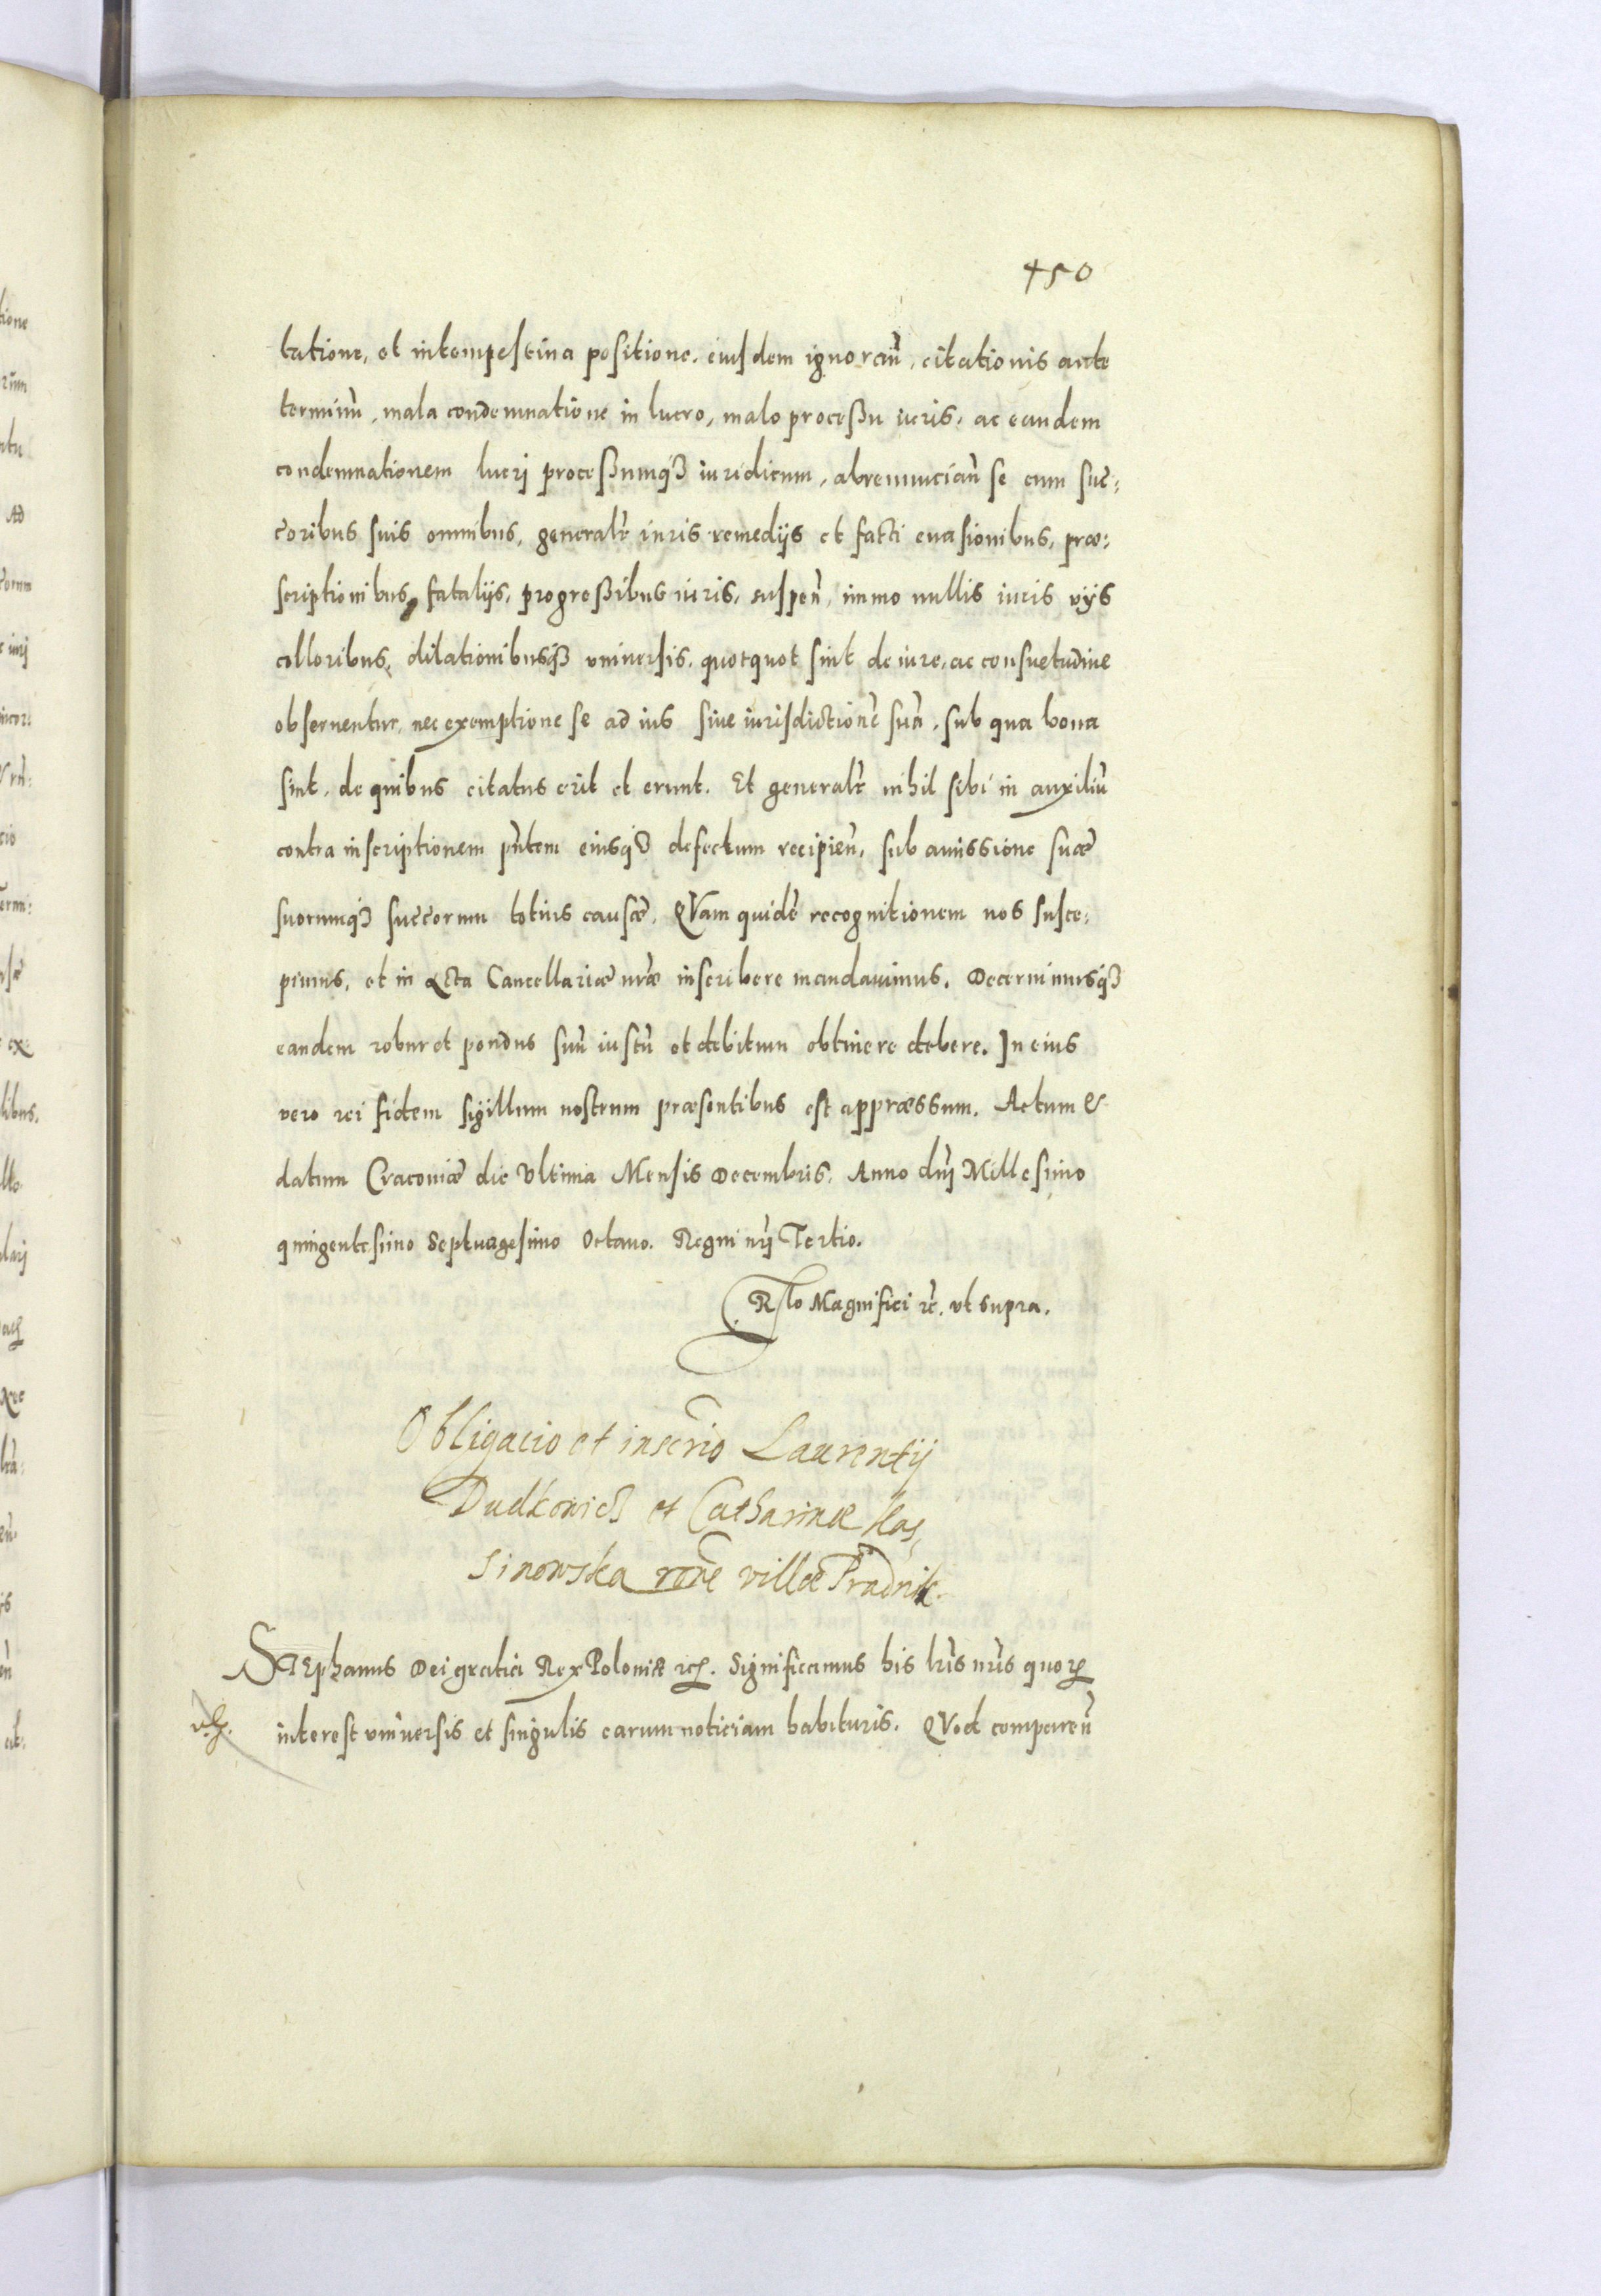 450
tatione, et intempestiua positione. eiusdem ignorañ, citationis ante
terminũ, mala condemnatione in lucro, malo processu iuris, ac eandem
condemnationem lucri processumq3 iuridicum, abrenuncian̄ se cum suc̄:
c̄oribus suis omnibus, generalr̄ iuris remedijs et facti euasionibus, præ:
scriptionibus, fatalijs, progressibus iuris, suspen̄, immo nullis iuris vijs
colloribus, dilationibusq3 vniuersis, quotquot sint de iure, ac consuetudine
obseruentur, nec exemptione se ad ius siue iurisdictionē suā, sub qua bona
sint, de quibus citatus erit et erunt. Et generalr̄ nihil sibi in auxiliū
contra inscriptionem pn̄tem eiusq3 defectum recipien̄, sub amissione suæ
suorumq3 succ̄orum totius causæ. QVam quidē recognitionem nos susce:
pimus, et in Acta Cancellariæ nr̄æ inscribere mandauimus. Decernimusq3
eandem robur et pondus suū iustū et debitum obtinere debere. In eius
vero rei fidem sigillum nostrum præsentibus est appræssum. Actum &
datum Cracouiæ die Vltima Mensis Decembris. Anno dn̄i Millesimo
quingentesimo Septuagesimo Octauo. Regni nr̄i Tertio.
Rlo Magnifici rc̄. vt supra.
Obligacio et inscr̄io Laurentij
Dudkowich et Catharinæ Kos,
sinowska rōne villæ Prądnik.
STEphanus Dei gratia Rex Poloniæ etc. Significamus his lr̄is nr̄is quoꝝ
interest vniuersis et singulis earum noticiam habituris. QVod comparen̄